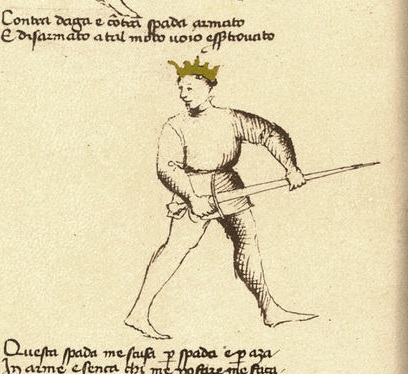 Contra daga e cōtra spada armato
E disarmato a tal modo voio esser trovato
Questa spada me scusa p spada e p aza
In arme e senza chi me po fare me faza